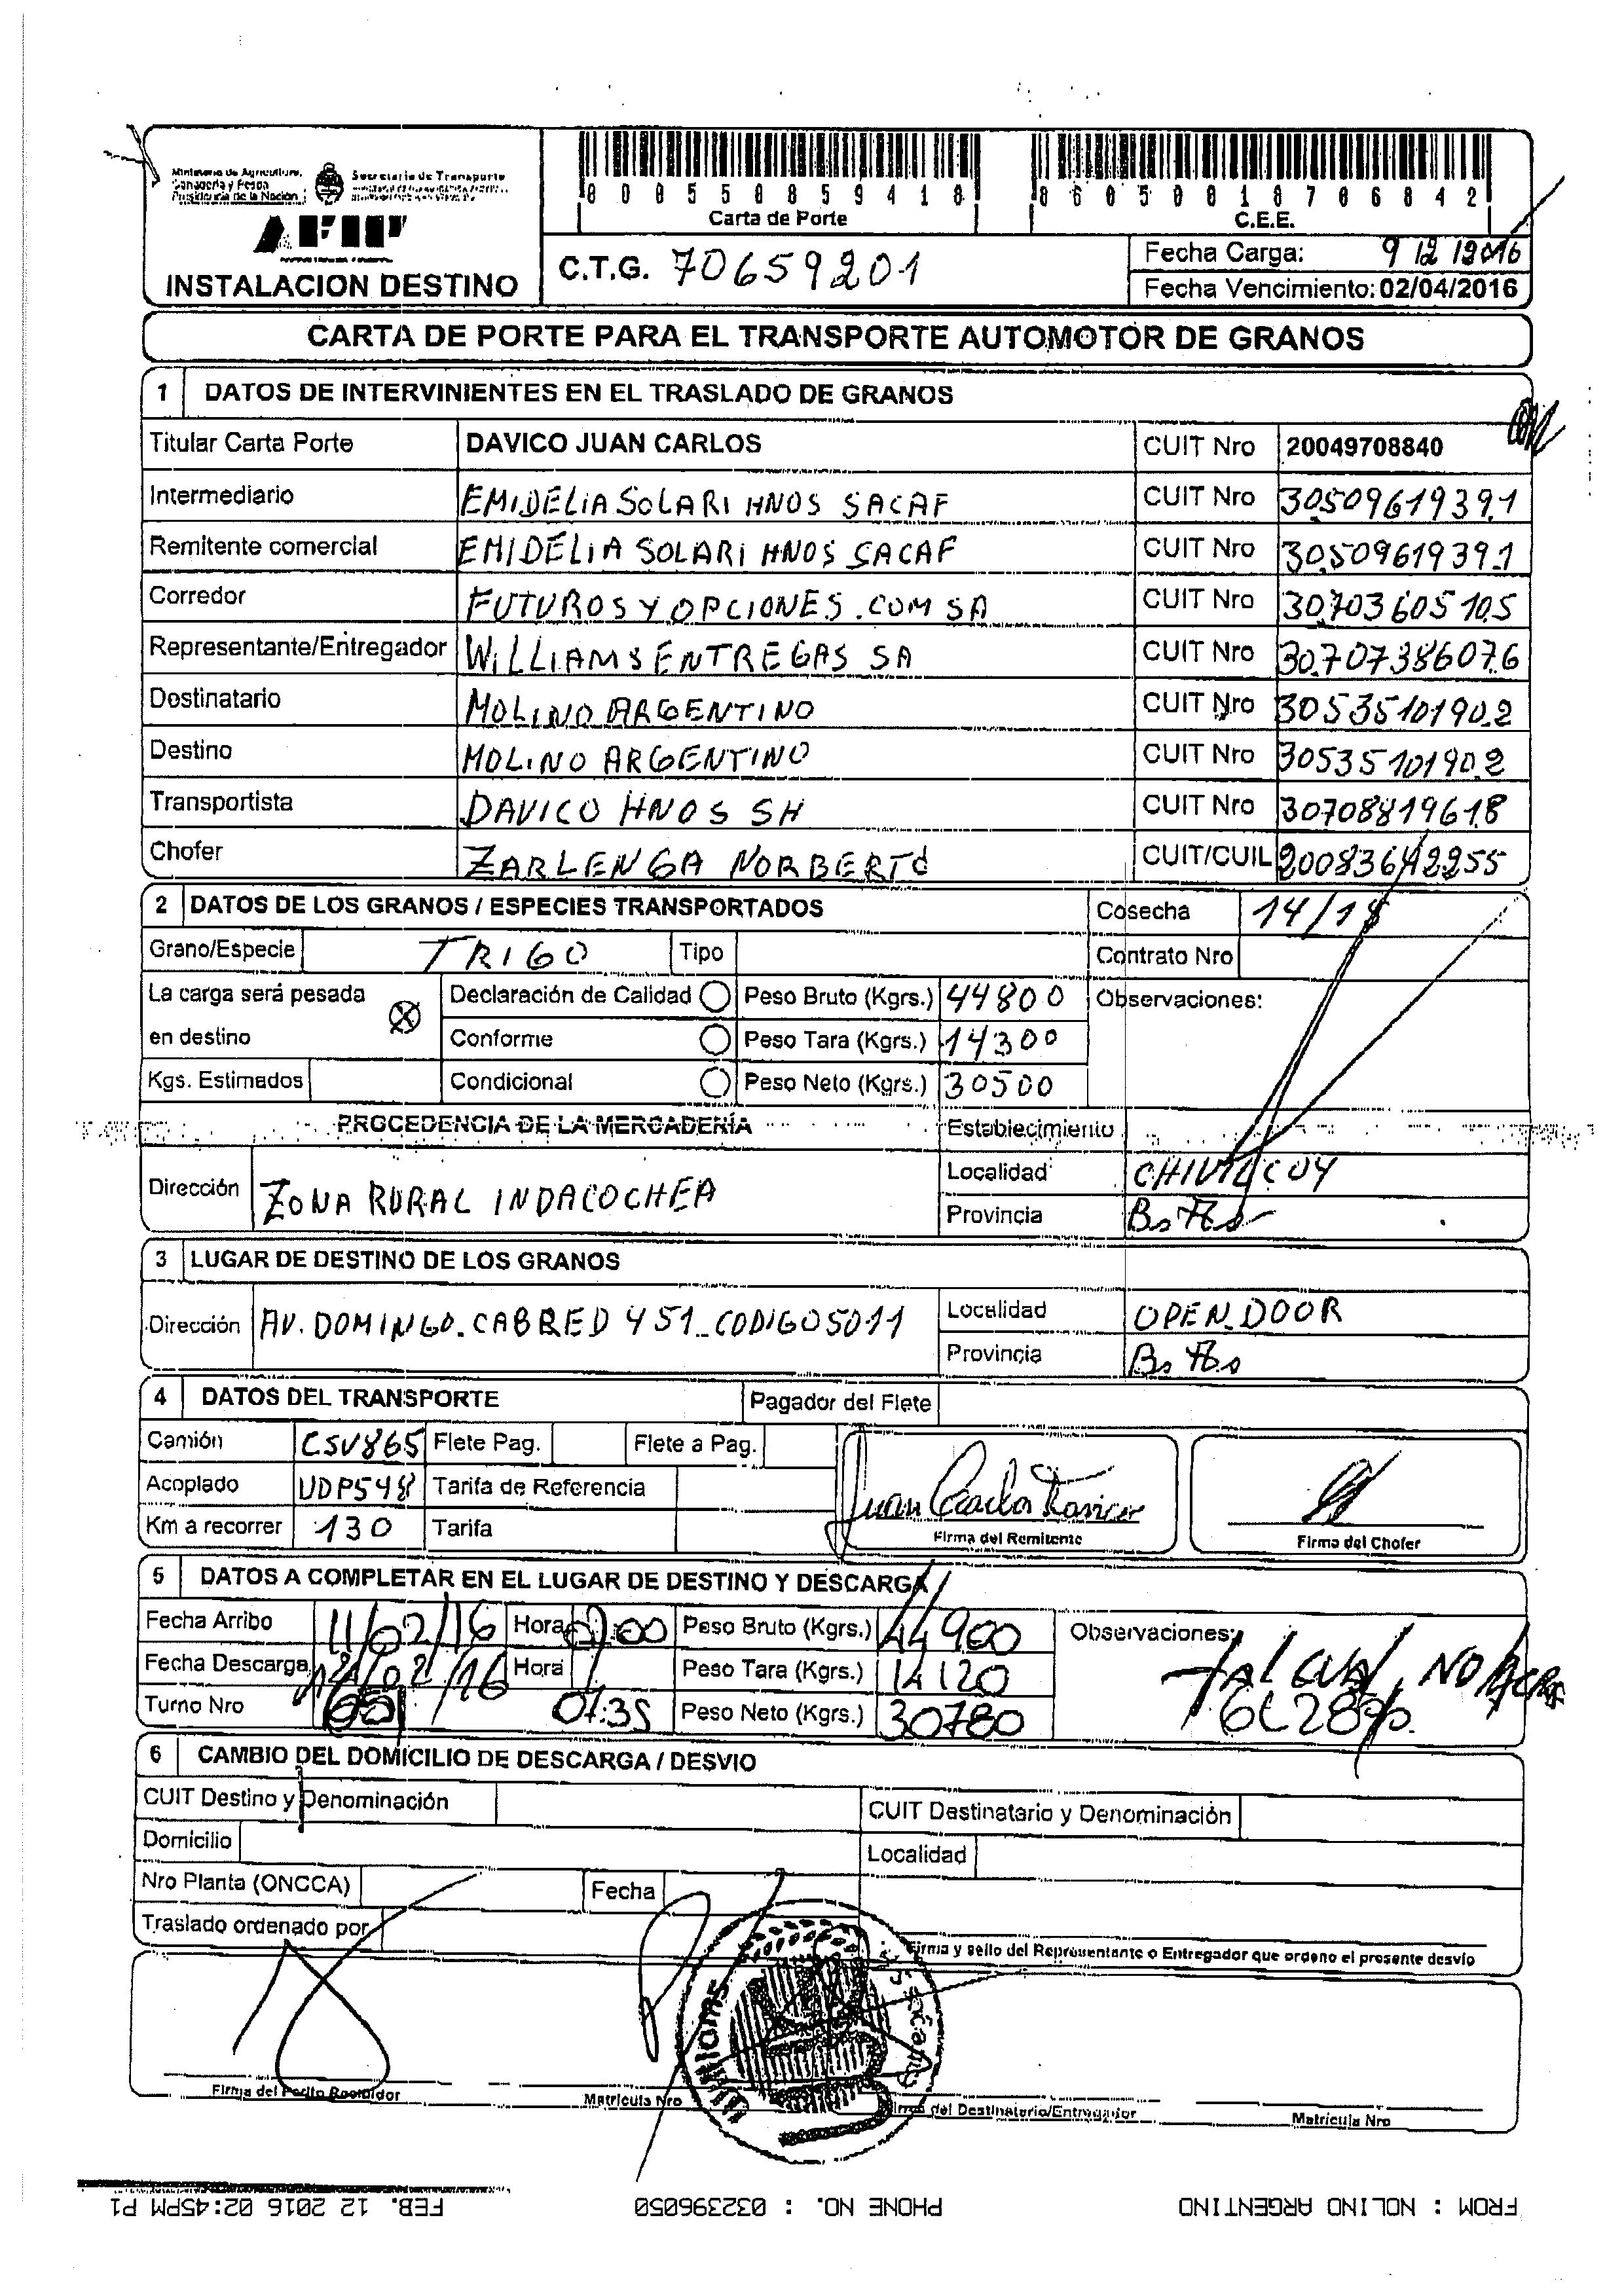 Ministerio de Agricultura,
Ganadería y Pesca
Presidencia de la Nación
Secretaría de Transporte
AFIP
INSTALACION DESTINO
Carta de Porte
C.E.E.
C.T.G. 70659201
Fecha Carga: 9 12 12016
Fecha Vencimiento: 02/04/2016
CARTA DE PORTE PARA EL TRANSPORTE AUTOMOTOR DE GRANOS
1 DATOS DE INTERVINIENTES EN EL TRASLADO DE GRANOS
Titular Carta Porte DAVICO JUAN CARLOS CUIT Nro 20049708840
Intermediario EMIDELIA SOLARI HNOS SACAF CUIT Nro 30.50961939.1
Remitente comercial EMIDELIA SOLARI HNOS SACAF CUIT Nro 30.50961939.1
Corredor FUTUROS Y OPCIONES.COM SA CUIT Nro 30.70360510.5
Representante/Entregador WILLIAMS ENTREGAS SA CUIT Nro 30.70738607.6
Destinatario MOLINO ARGENTINO CUIT Nro 3053510190.2
Destino MOLINO ARGENTINO CUIT Nro 3053510190.2
Transportista DAVICO HNOS SH CUIT Nro 30708819618
Chofer ZARLENGA NORBERTO CUIT/CUIL 20083642255
2 DATOS DE LOS GRANOS / ESPECIES TRANSPORTADOS Cosecha 14/15
Grano/Especie TRIGO Tipo Contrato Nro
La carga será pesada en destino X Declaración de Calidad Peso Bruto (Kgrs.) 44800 Observaciones:
Conforme Peso Tara (Kgrs.) 14300
Kgs. Estimados Condicional Peso Neto (Kgrs.) 30500
PROCEDENCIA DE LA MERCADERÍA Establecimiento
Dirección ZONA RURAL INDACOCHEA Localidad CHIVILCOY
Provincia Bs As
3 LUGAR DE DESTINO DE LOS GRANOS
Dirección AV. DOMINGO. CABRED 451_CODIGO5011 Localidad OPEN.DOOR
Provincia Bs As
4 DATOS DEL TRANSPORTE Pagador del Flete
Camión CSV865 Flete Pag. Flete a Pag.
Acoplado UDP548 Tarifa de Referencia
Km a recorrer 130 Tarifa
Juan Carlos Davico
Firma del Remitente Firma del Chofer
5 DATOS A COMPLETAR EN EL LUGAR DE DESTINO Y DESCARGA
Fecha Arribo 11/02/16 Hora Peso Bruto (Kgrs.) 44900 Observaciones:
Fecha Descarga 12/02/16 Hora 07:35 Peso Tara (Kgrs.) 14120
Turno Nro Peso Neto (Kgrs.) 30780
6 CAMBIO DEL DOMICILIO DE DESCARGA / DESVIO
CUIT Destino y Denominación CUIT Destinatario y Denominación
Domicilio Localidad
Nro Planta (ONCCA) Fecha
Traslado ordenado por
Firma y sello del Representante o Entregador que ordeno el presente desvío
Williams
Firma del Perito Recibidor Matrícula Nro Firma del Destinatario/Entregador Matrícula Nro
FROM : NOLINO ARGENTINO PHONE NO. : 032396050 FEB. 12 2016 02:45PM P1